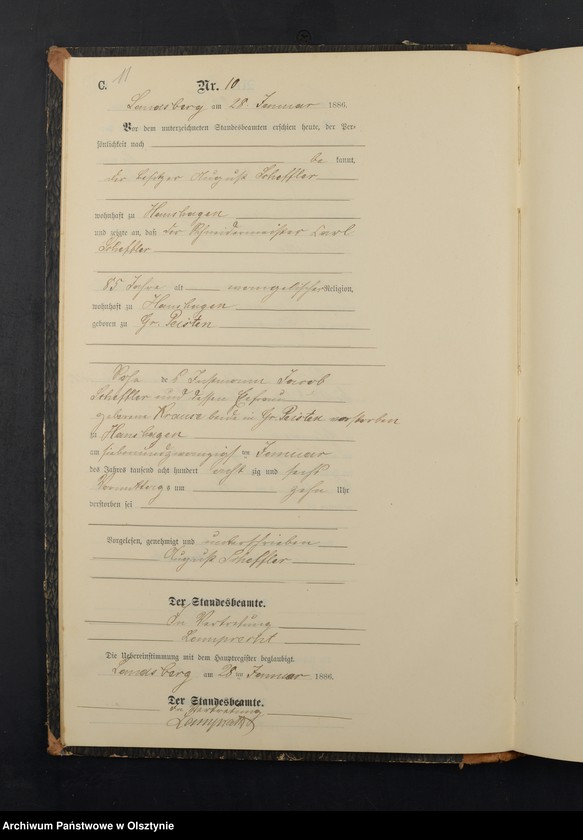 C. 11
Nr. 10
Landsberg am 28 Januar 1886.
Vor dem unterzeichneten Standesbeamten erschien heute, der Per-
sönlichkeit nach
be kannt,
der Besitzer August Scheffler
wohnhaft zu Hanshagen
und zeigte an, daß der Schneidermeister Carl
Scheffler
85 Jahre alt evangelischer Religion,
wohnhaft zu Hanshagen
geboren zu Gr. Peisten
Sohn des Instmann Jacob
Scheffler und dessen Ehefrau
geborene Krause beide in Gr. Peisten verstorben
zu Hanshagen
am siebenundzwanzigsten Januar
des Jahres tausend acht hundert acht zig und sechs
Vormittags um zehn Uhr
verstorben sei
Vorgelesen, genehmigt und unterschrieben
August Scheffler
Der Standesbeamte.
In Vertretung
Lamprecht
Die Uebereinstimmung mit dem Hauptregister beglaubigt.
Landsberg am 28 ten Januar 1886.
Der Standesbeamte.
In Vertretung
Lamprecht
Archiwum Państwowe w Olsztynie